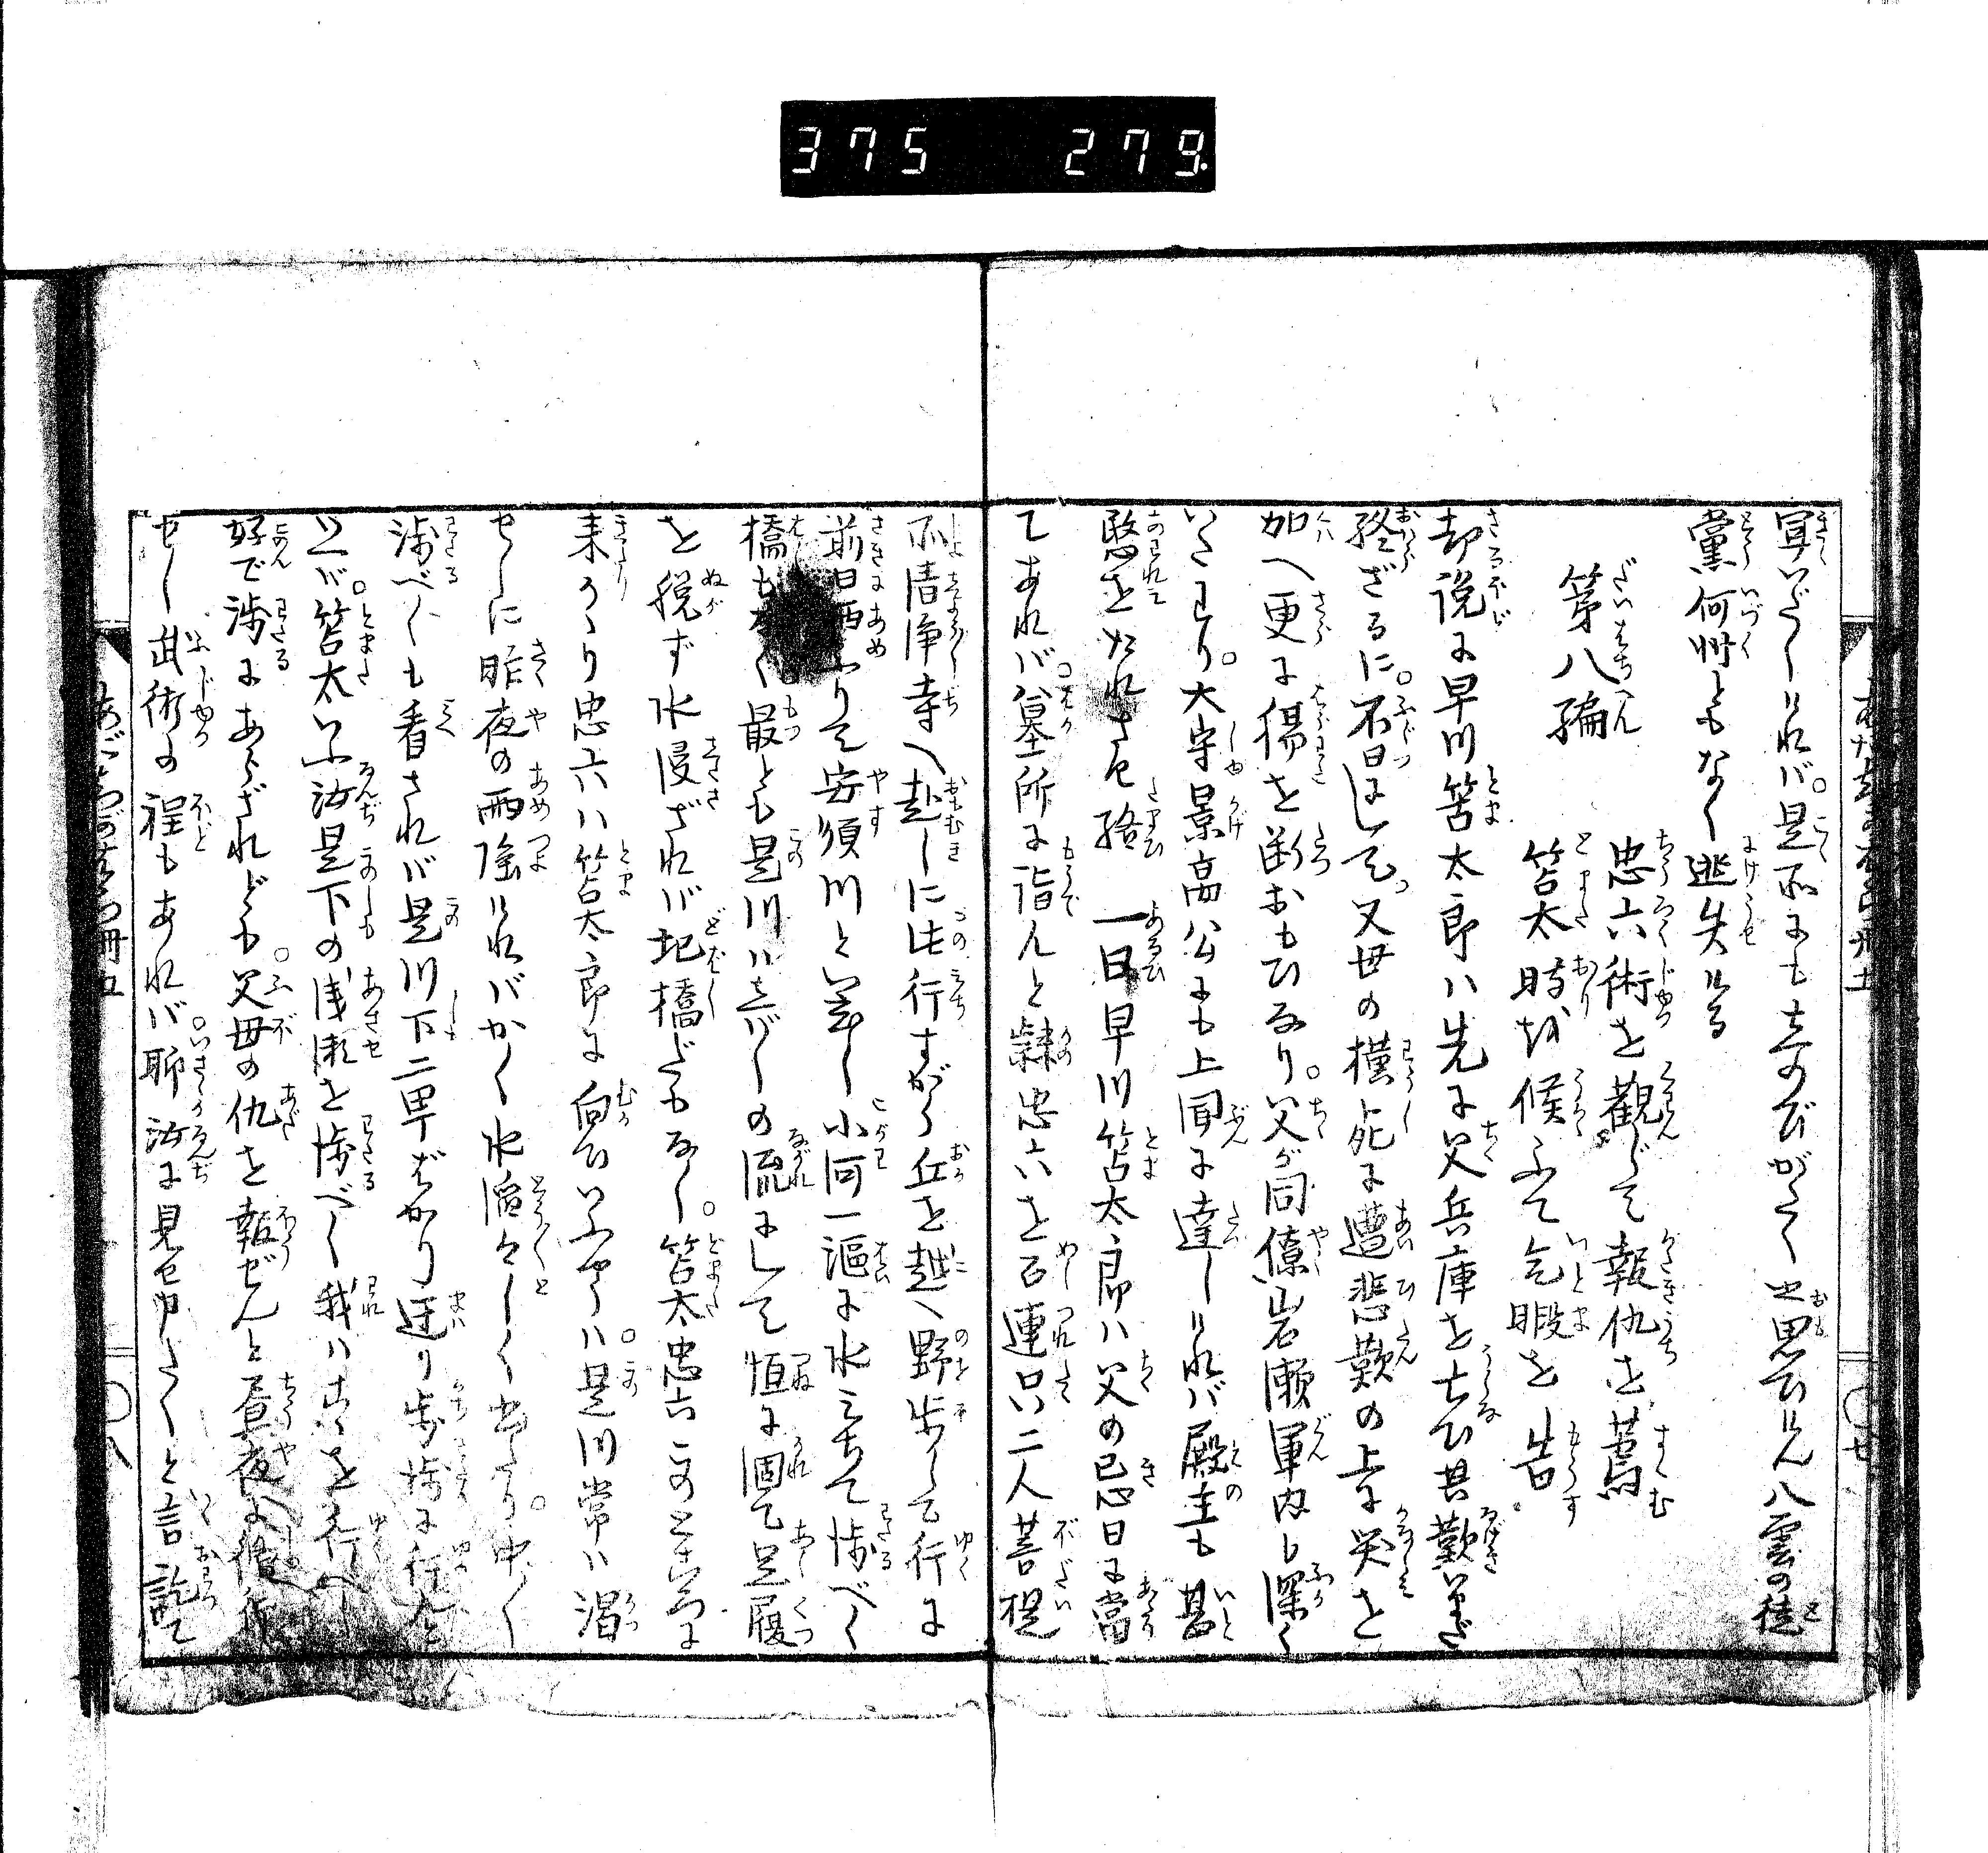 375 279
冥いだしければ。是所にも立のびがたくや思ひけん八雲の徒
黨何圸ともなく逃失ける
第八編
忠六術を觀じて報仇を蔦む
笘太時を候ふて乞暇を告
却説に早川笘太郎ハ先に父兵庫を亡ひ其歎いまだ
終ざるに。不日して又母の横死に遭悲歎の上に哭を
加へ更に傷を断おもひあり。父が同僚岩瀬軍内も深く
いたはり。大守景高公にも上聞に達しければ殿主も甚
愍をたれさせ給ふ一日早川笘太郎ハ父の忌日に當
てあれバ。墓所に詣んと隷忠六を召連只二人菩提
所清浄寺へ赴しに此行すがら丘を越へ野歩して行に
前日雨ふりて安須川と号し小河一漚に水みちて渉べく
橋もなく最とも是川ハしバしの流にして恒に涸て足履
を脱ず水侵ざれば圯橋だもなし。笘太忠六このところに
来かゝり忠六ハ笘太郎に向ひいふやうハ。是川常ハ渇
せしに昨夜の雨強ければかく水滔々しく出たり。中〳〵
渉べくも看されバ是川下二里ばかり迂り歩渉に行んと
いへバ。笘太いふ汝是下の浅瀬を渉べし我ハすぐを行べし
好で渉るにあらざれども。父母の仇を報ぜんと昼夜に修行
せし武術の程もあれバ。聊汝に見せ申さくと言訖て